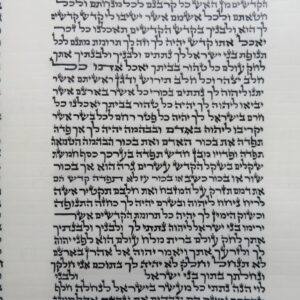 הקדשים מן האש כל קרבנם לכל מנחתם ולכל
חטאתם ולכל אשמם אשר ישיבו לי קדש קדשים
לך הוא ולבניך בקדש הקדשים תאכלנו כל זכר
יאכל אתו קדש יהיה לך וזה לך תרומת מתנם לכל
תנופת בני ישראל לך נתתים ולבניך ולבנתיך
אתך לחק עולם כל טהור בביתך יאכל אתו כל
חלב יצהר וכל חלב תירוש ודגן ראשיתם אשר
יתנו ליהוה לך נתתים בכורי כל אשר בארצם אשר
יביאו ליהוה לך יהיה כל טהור בביתך יאכלנו כל
חרם בישראל לך יהיה כל פטר רחם לכל בשר אשר
יקריבו ליהוה באדם ובבהמה יהיה לך אך פדה
תפדה את בכור האדם ואת בכור הבהמה הטמאה
תפדה ופדויו מבן חדש תפדה בערכך כסף חמשת
שקלים בשקל הקדש עשרים גרה הוא אך בכור
שור או בכור כשב או בכור עז לא תפדה קדש הם
את דמם תזרק על המזבח ואת חלבם תקטיר אשה
לריח ניחח ליהוה ובשרם יהיה לך כחזה התנופה
וכשוק הימין לך יהיה כל תרומת הקדשים אשר
ירימו בני ישראל ליהוה נתתי לך ולבניך ולבנתיך
אתך לחק עולם ברית מלח עולם הוא לפני יהוה
לך ולזרעך אתך ויאמר יהוה אל אהרן בארצם
לא תנחל וחלק לא יהיה לך בתוכם אני חלקך
ונחלתך בתוך בני ישראל ולבני
לוי הנה נתתי כל מעשר בישראל לנחלה חלף